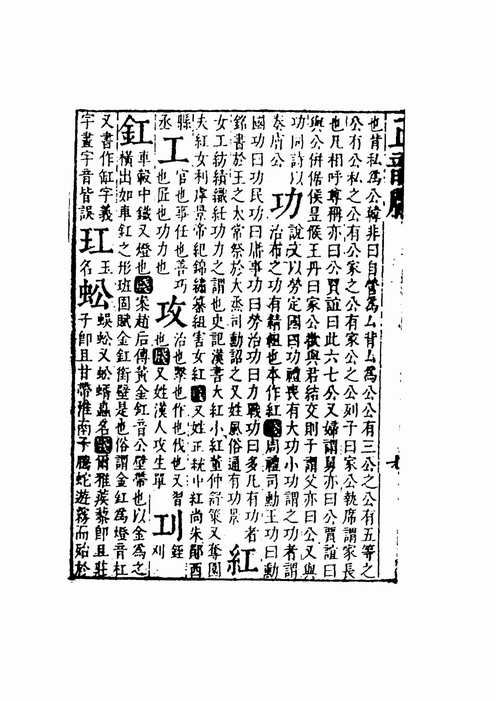 也背私爲公韓非曰自營爲厶背厶爲公公有三公之公有五等之
公有公私之公有公家之公有家公之公列子曰家公執席謂家長
也凡相呼尊稱亦曰公賈誼曰此六七公又婦謂舅亦曰公賈誼曰
與公倂倨侯王丹曰家公與君結交則子謂父亦曰公又與
功同詩以奏膚公
功
說文以勞定國曰功禮喪有大功小功謂之功者謂
治布之功有精粗也本作紅周禮司勳王功曰勳
國功曰功民功曰庸事功曰勞治功曰力戰功曰多凡有功者
銘書於王之太常祭於大烝司勳詔之又姓風俗通有功景
紅
女工紡績織紝功力之謂也史記漢書大紅小紅董仲舒策又奪園
夫紅女利序景帝紀錦繡纂組害女紅又姓正統中紅尚朱鄖西
縣丞
工
官也事任也善巧也匠也功力也
攻
治也擊也作也伐也又習也又姓漢人攻生單
釭
車轂中鐵又燈也案趙后傳黃金釭音公壁帶也以金爲之
橫出如車釭之形班固賦金釭銜璧是也俗謂金釭爲燈音杠
又書作缸字義字畫字音皆誤
玒
玉名
蚣
蜈蚣又蚣蝑蟲名爾雅蒺藜卽且莊
子卽且甘帶淮南子騰蛇遊霧而殆於